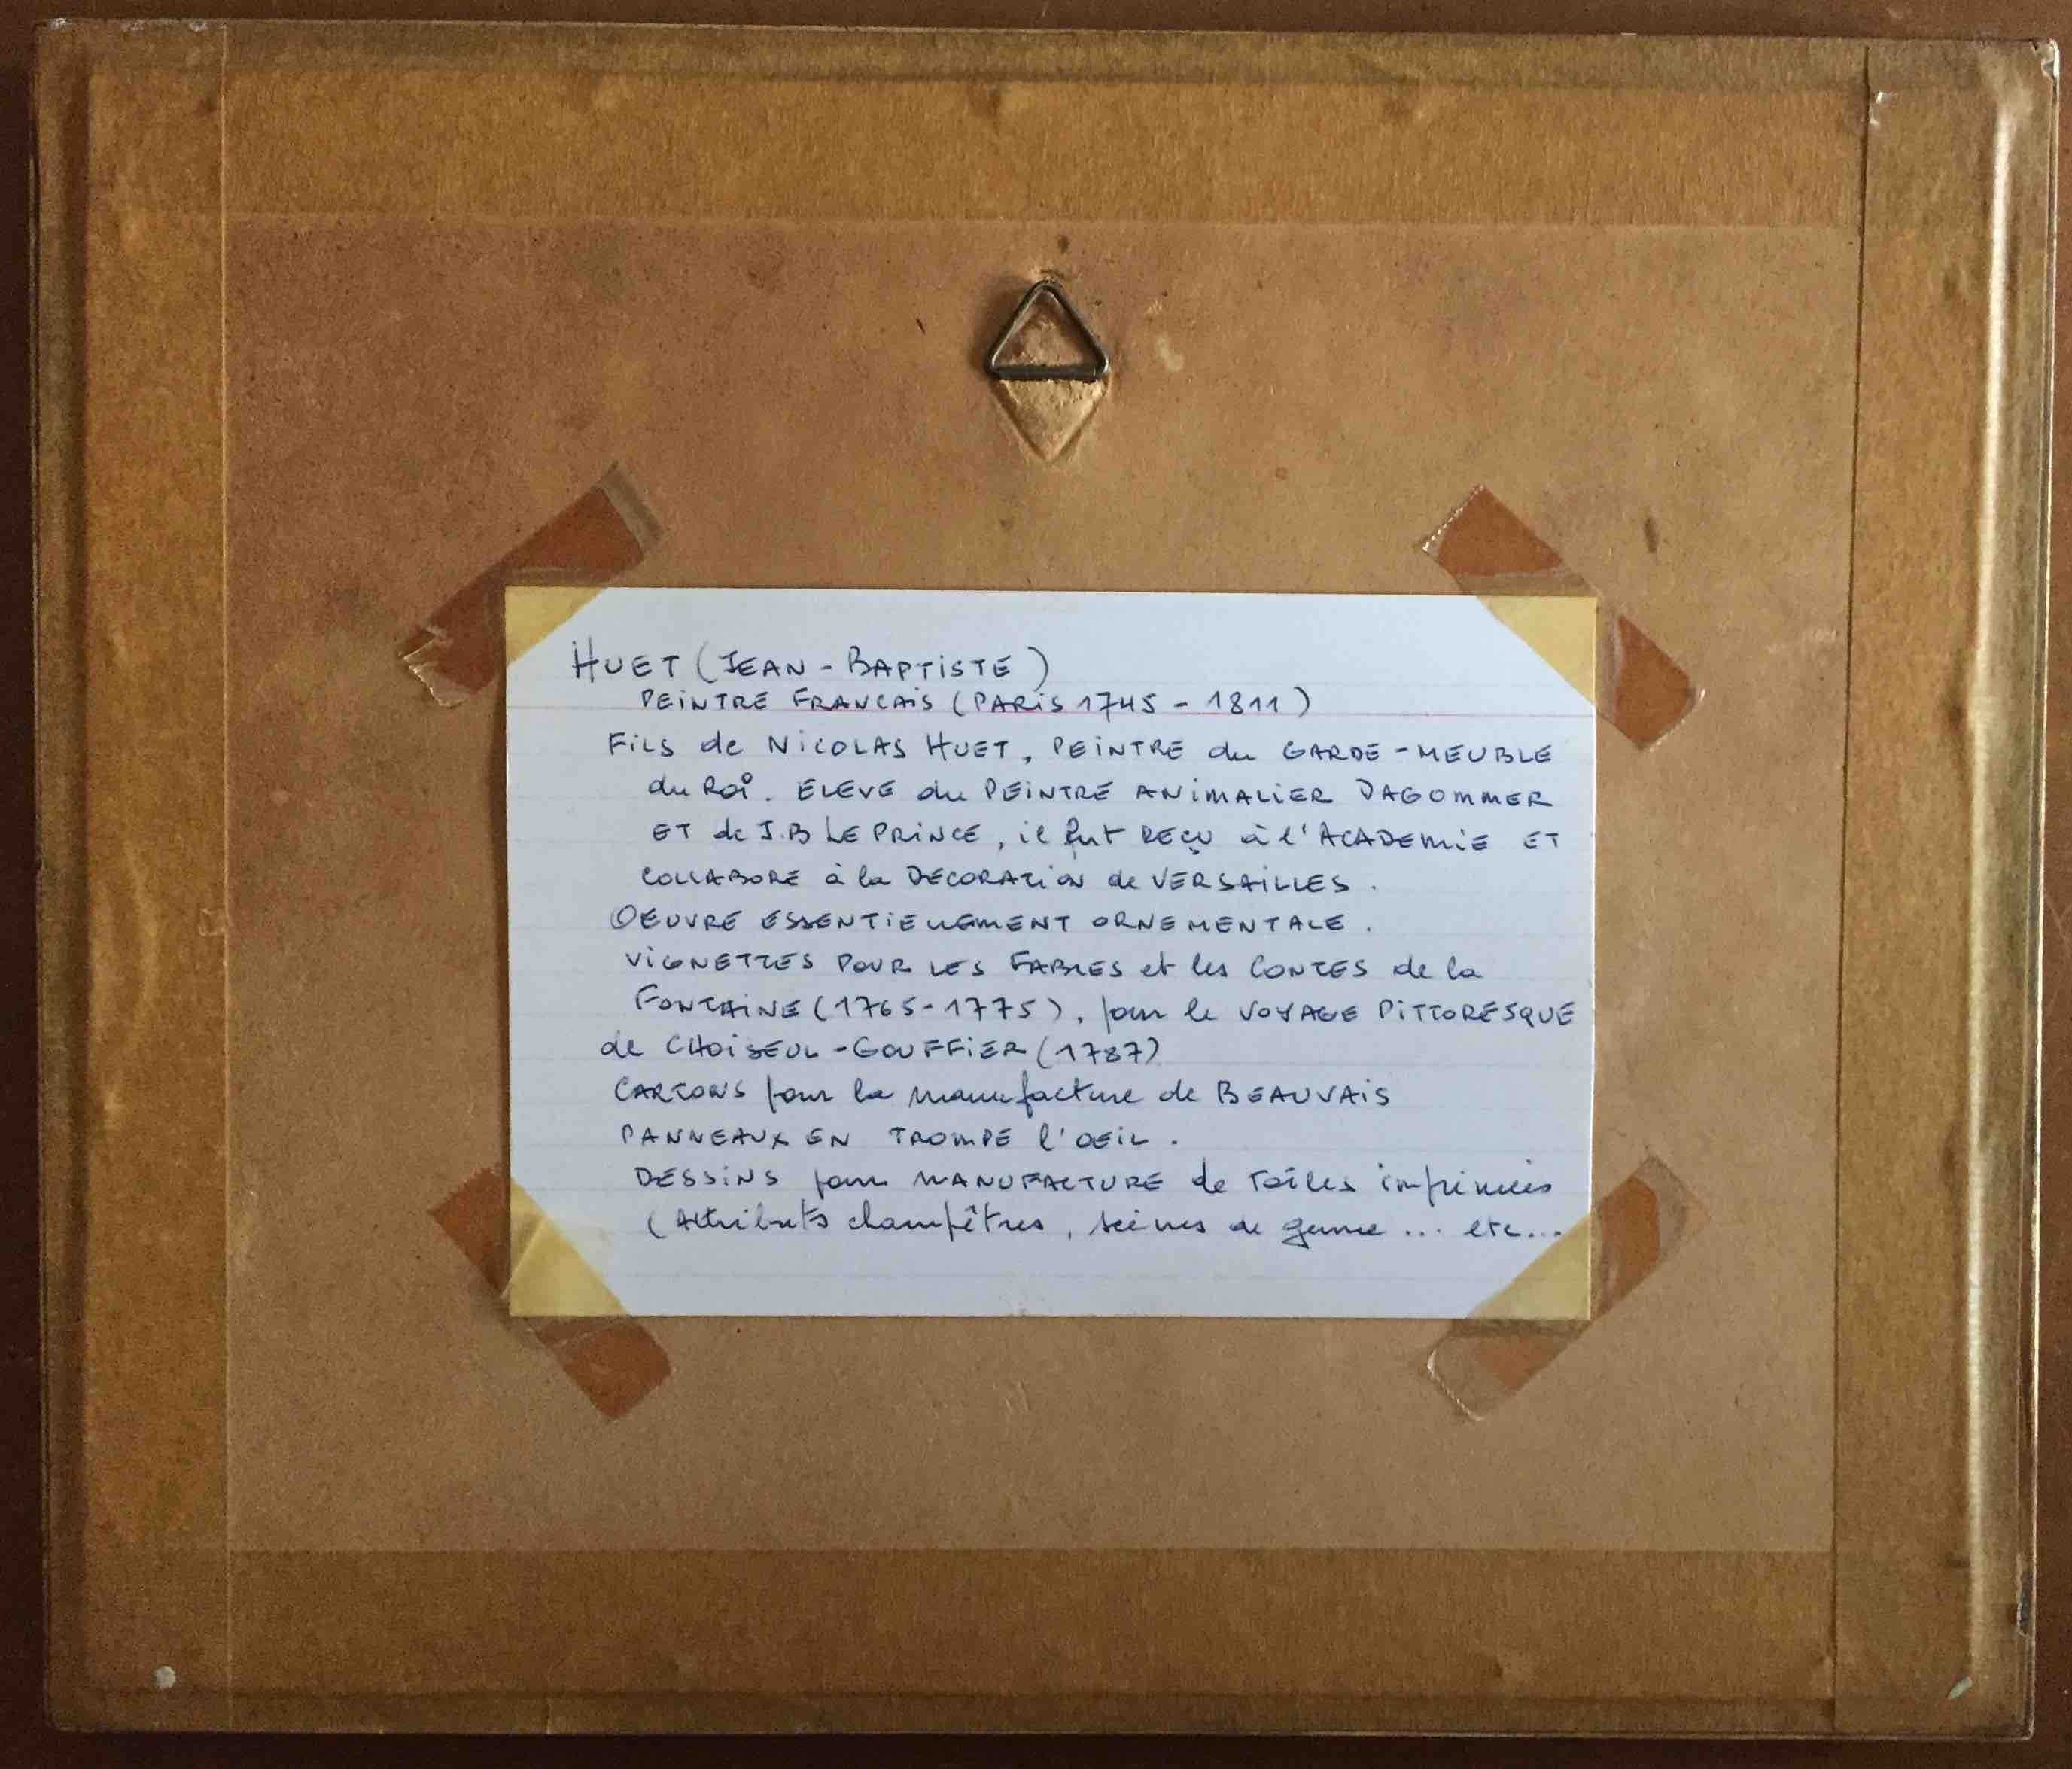 HUET (JEAN-BAPTISTE)
PEINTRE FRANCAIS (PARIS 1745 - 1811)
FILS de NICOLAS HUET, PEINTRE du GARDE-MEUBLE
du Roi. ELEVE du PEINTRE ANIMALIER DAGOMMER
ET de J.B LE PRINCE, il fut REÇU à l'ACADEMIE ET
COLLABORE à la DECORATION de VERSAILLES.
OEUVRE ESSENTIELLEMENT ORNEMENTALE.
VIGNETTES POUR LES FABLES et les CONTES de la
FONTAINE (1765-1775), pour le VOYAGE PITTORESQUE
de CHOISEUL-GOUFFIER (1787)
CARTONS pour la manufacture de BEAUVAIS
PANNEAUX EN TROMPE l'OEIL.
DESSINS pour MANUFACTURE de Toiles imprimées
(Attributs champêtres, scènes de genre ... etc...